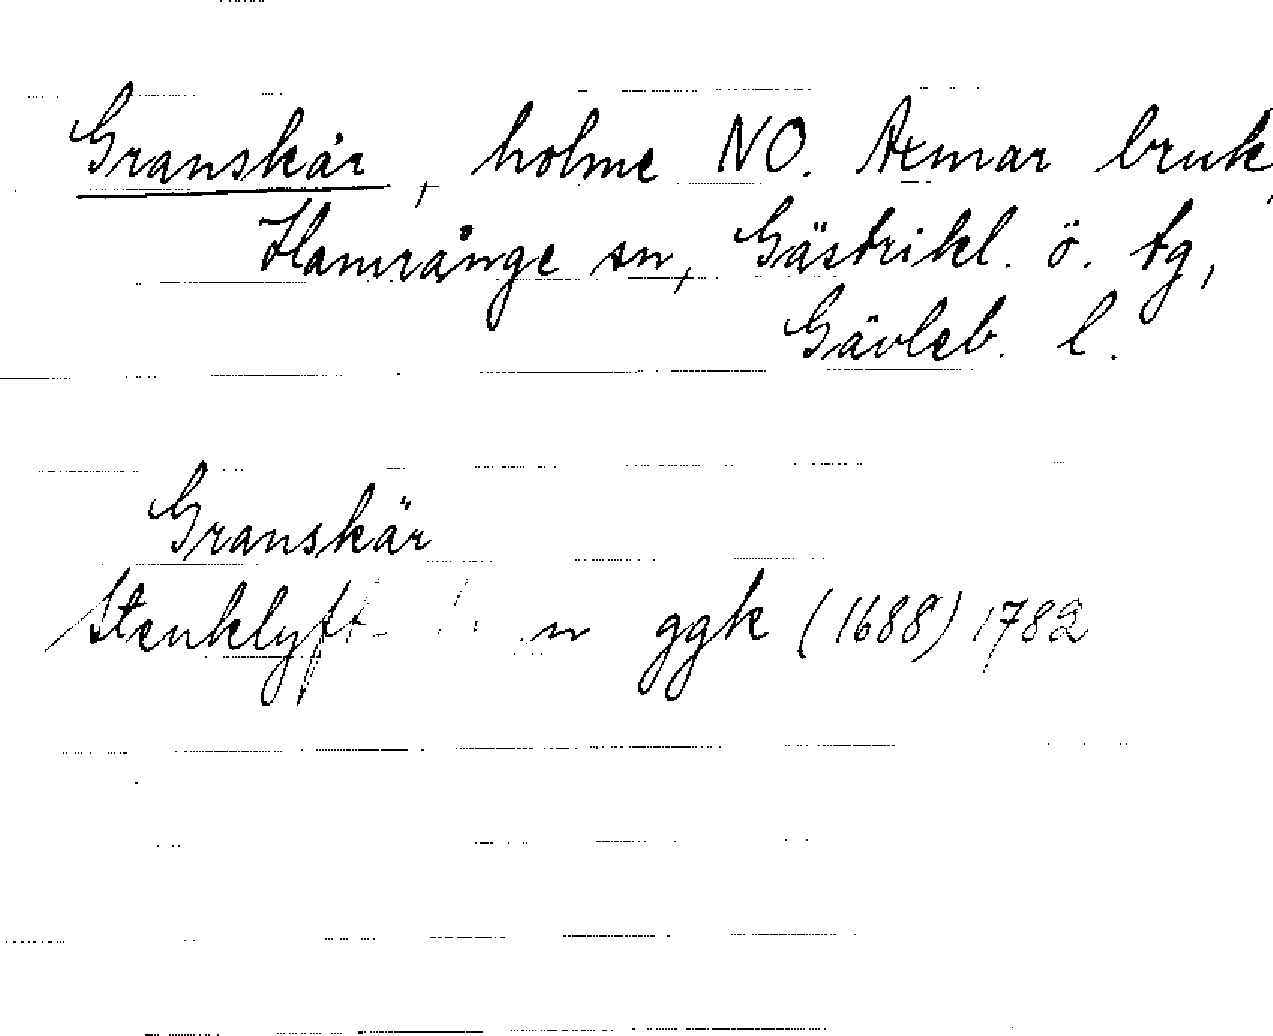 Granskär, holme NO. Axmar bruk,
Hamrånge sn, Gästrikl. ö. tg,
Gävleb. l.
Granskär
ggk (1688) 1782